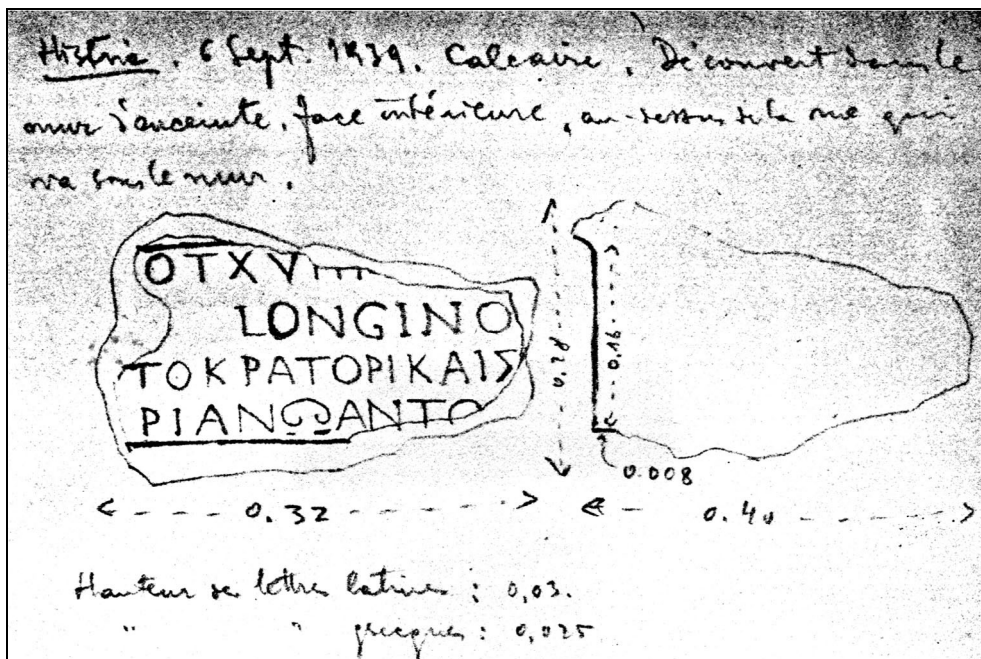 Histria. 6 Sept. 1939. Calcaire. Découvert dans le
mur d'enceinte, face intérieure, au-dessus de la rue qui
va sous le mur.
OTXVIII
LONGINO
ΤΟΚΡΑΤΟΡΙΚΑΙΣ
ΡΙΑΝΩΑΝΤΟ
0.21
0.16
0.008
0.32
0.40
Hauteur des lettres latines : 0,03.
" " grecques : 0,025